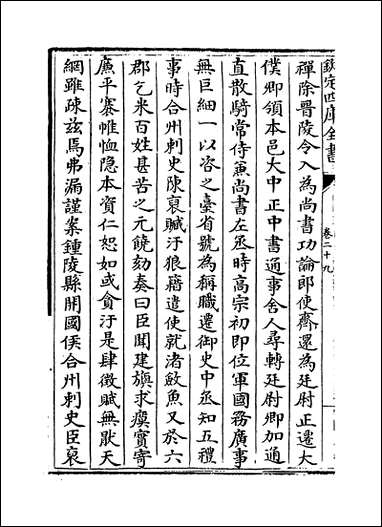 欽定四庫全書
卷二十九
禪除晋陵令入為尚書功論郎使齊還為廷尉正遷大
僕卿領本邑大中正中書通事舍人尋轉廷尉卿加通
直散騎常侍兼尚書左丞時高宗初即位軍國務廣事
無巨細一以咨之臺省號為稱職遷御史中丞知五禮
事時合州刺史陳裒贓汙狼籍遣使就渚斂魚又於六
郡乞米百姓甚苦之元饒劾奏曰臣聞建旟求瘼實寄
廉平褰帷恤隐本資仁恕如或貪汙是肆徵賦無猒天
網雖疎茲焉弗漏謹案鍾陵縣開國侯合州刺史臣裒